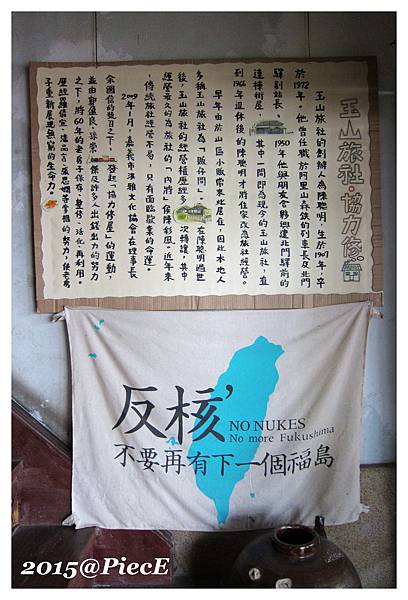 玉山旅社·協力修
玉山旅社的創辦人為陳聰明,生於1907年,卒
於1972年。他曾任職於阿里山森鐵的列車長及北門
驛副站長,1950年他與朋友合夥興建北門驛前的
連棟街屋,其中一間即為現今的玉山旅社,直
到1966年退休後的陳聰明才將住家改為旅社經營。
早年由於山區小販常來此居住,因此本地人
多稱玉山旅社為「販仔間」。在陳聰明過世
後,玉山旅社的經營權歷經多次轉讓,其中
經營最久的為旅社的「內將」侯陣彩鳳。近年來
,傳統旅社經營不易,只有面臨歇業的命運。
2009年1月,嘉義市洪雅文化協會在理事長
余國信的號召之下,發起「協力修屋」的運動,
並由鄭盈良、徐榮傑及許多人出錢出力的努力
之下,將60年的老房子保存、整修、活化、再利用。
歷經羅倩宜、潘品言、張思嫺等掌櫃的努力,使老房
子重新展現無窮的生命力。
反核'
NO NUKES
No more Fukushima
不要再有下一個福島
2015@PiecE